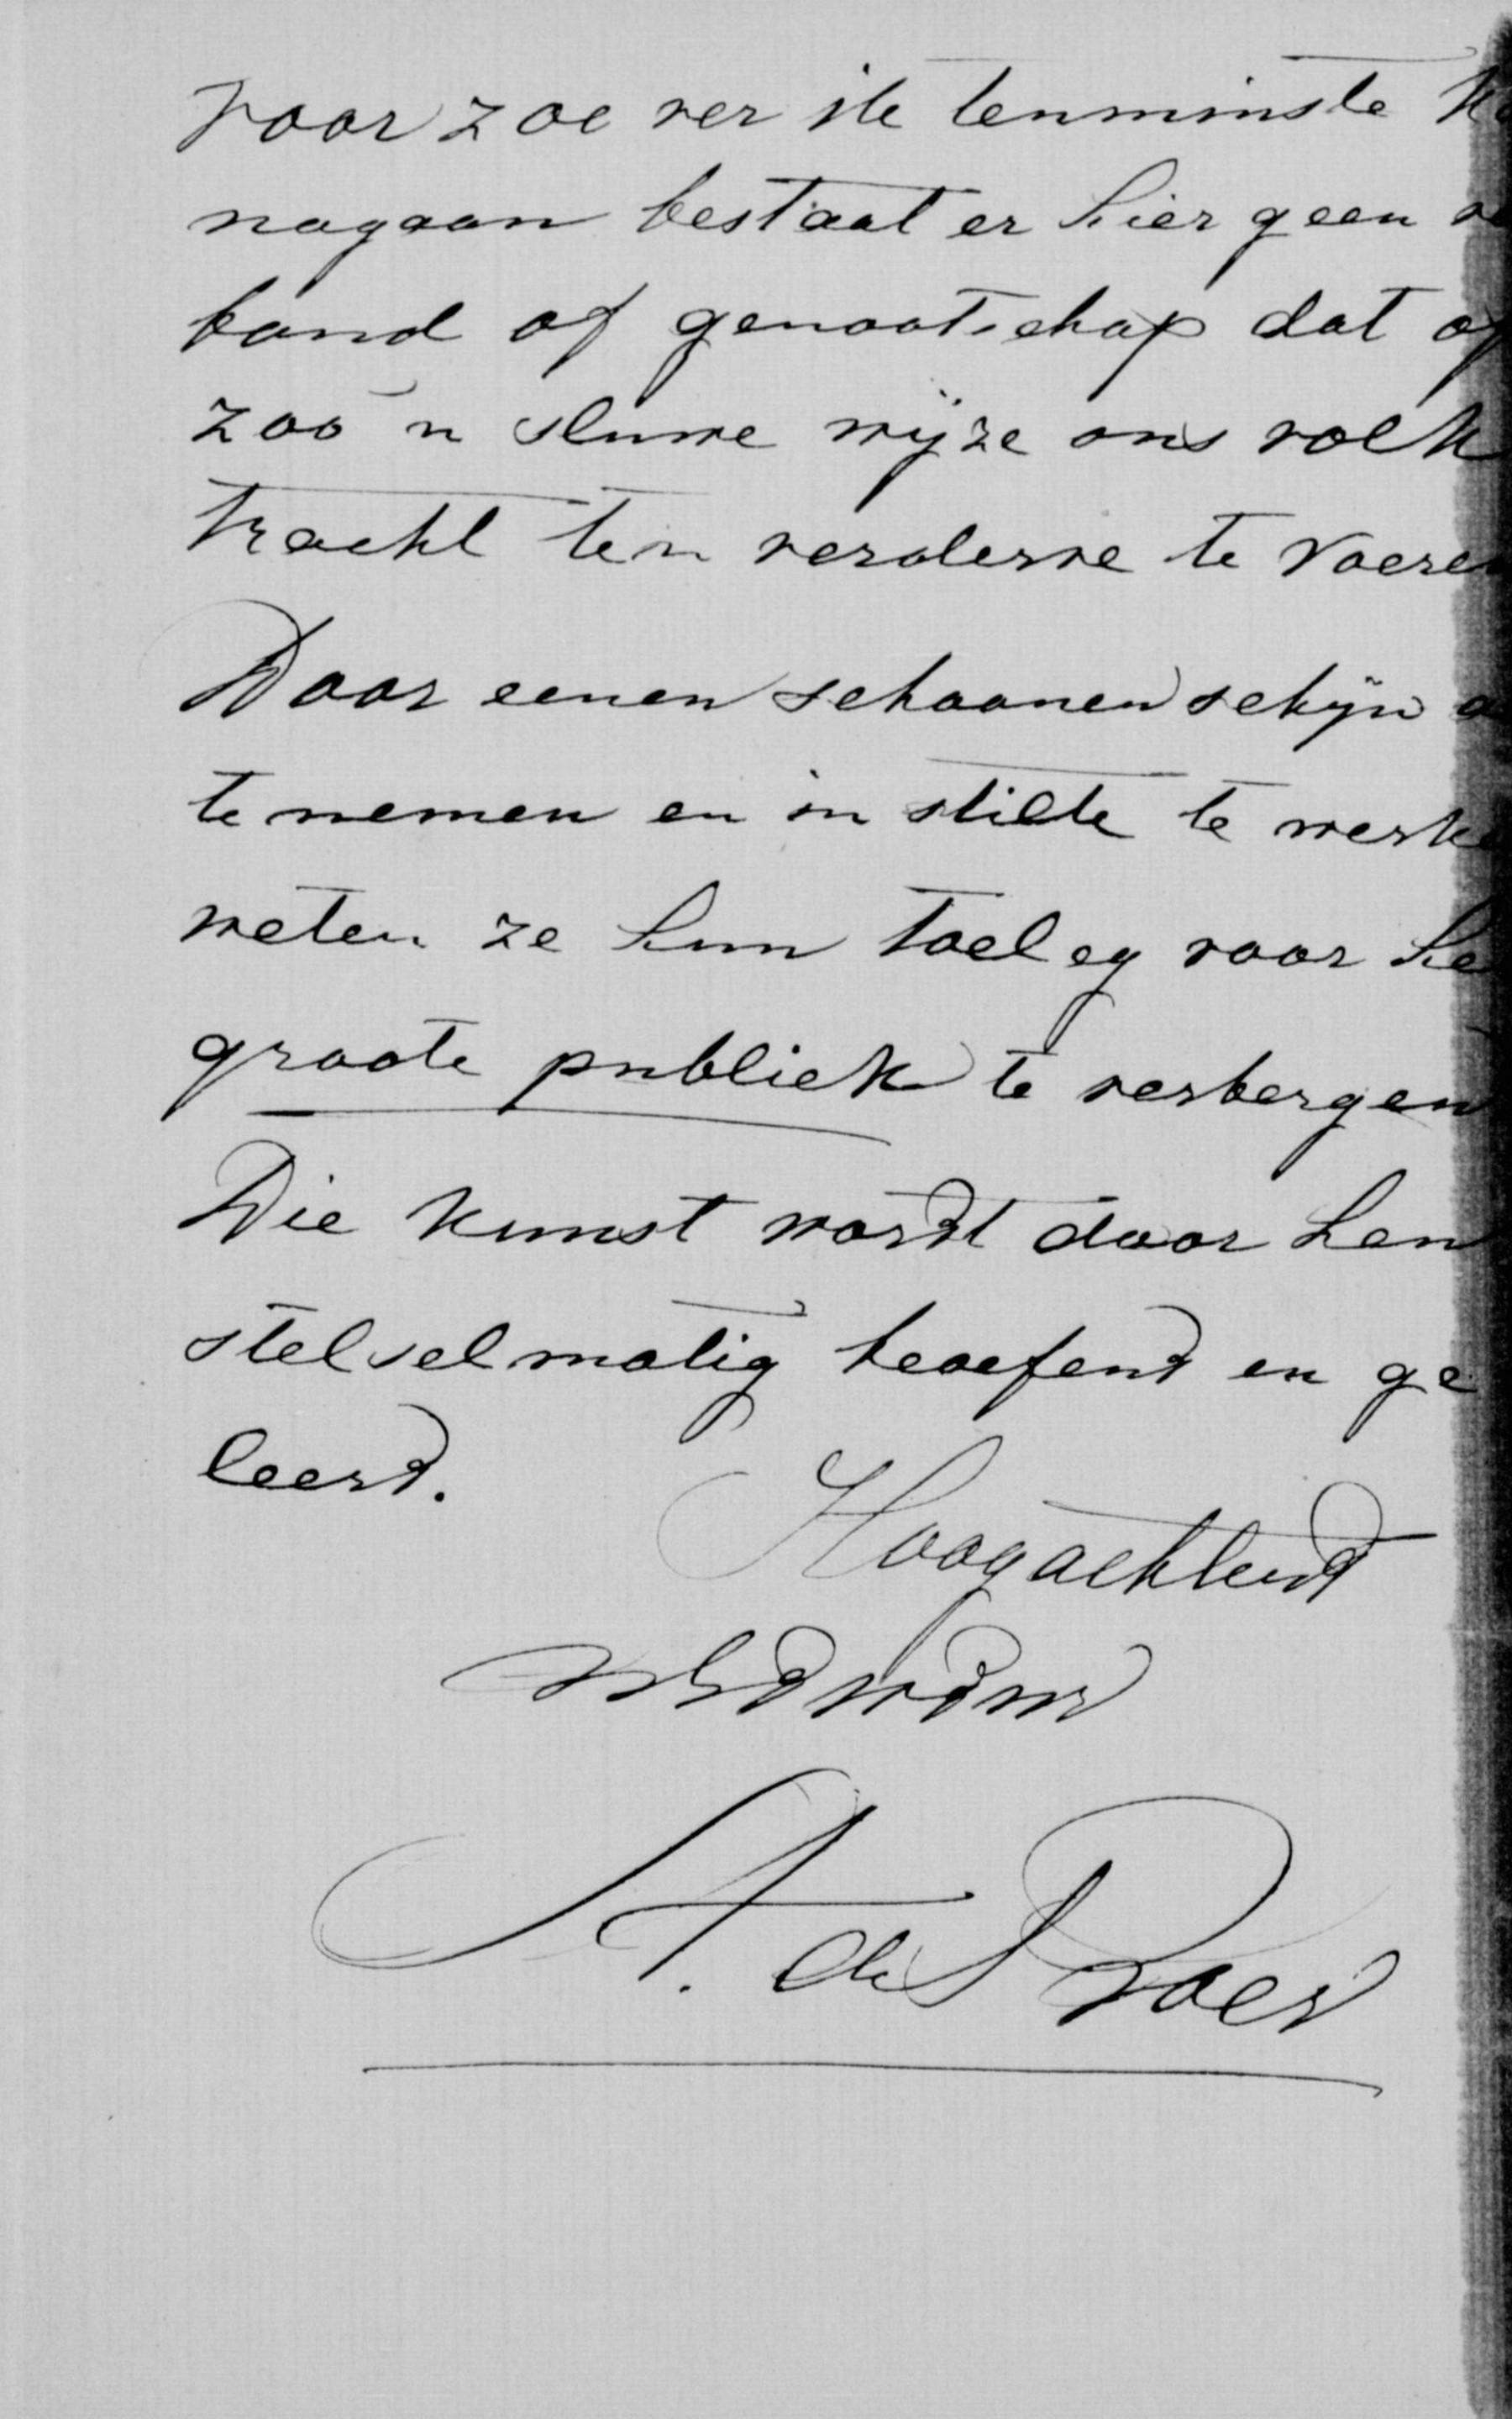 voor zoe ver ik tenminste k
nagaan bestaat er hier geen ve
band of genootschap dat op
zoo'n sluwe wijze ons volk
tracht ten verderve te voeren
Door eenen schoonen schijn a
te nemen en in stilte te werke
weten ze hun toeleg voor he
groote publiek te verbergen
Die kunst wordt door hen
stelselmatig beoefend en ge
leerd.
Hoogachtend
A. de Roer